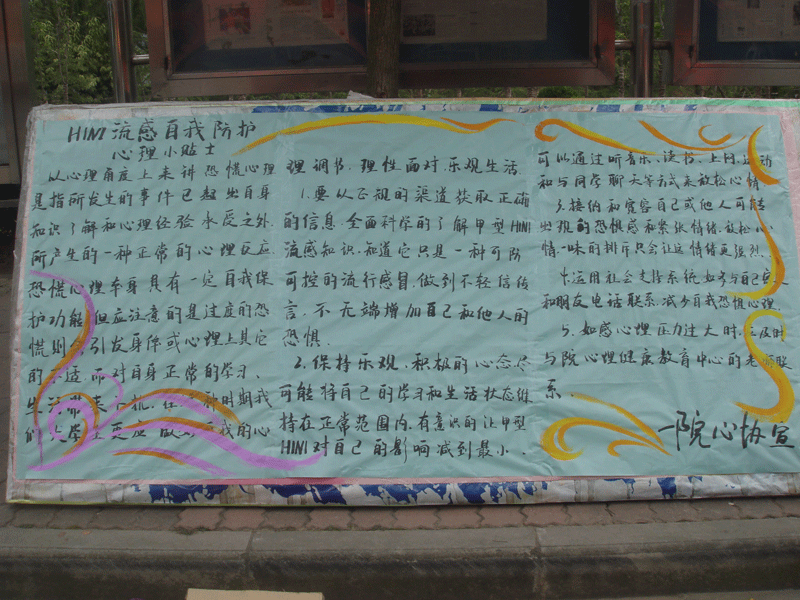 H1N1流感自我防护
心理小贴士
从心理角度上来讲恐慌心理
是指所发生的事件已超出自身
知识了解和心理经验承受之外
所产生的一种正常的心理反应.
恐慌心理本身具有一定自我保
护功能,但应注意的是过度的恐
慌则会引发身体或心理上其它
的不适,而对自身正常的学习、
生活带来
们大学生更应做好自我的心
理调节,理性面对,乐观生活.
1.要从正规的渠道获取正确
的信息,全面科学的了解甲型H1N1
流感知识,知道它只是一种可防
可控的流行感冒,做到不轻信传
言,不无端增加自己和他人的
恐惧.
2.保持乐观、积极的心态尽
可能将自己的学习和生活状态维
持在正常范围内,有意识的让甲型
H1N1对自己的影响减到最小.
可以通过听音乐、读书、上网、运动
和与同学聊天等方式来放松心情.
3.接纳和宽容自己或他人可能
出现的恐惧感和紧张情绪,放松心
情,一味的排斥只会让这情绪更强烈.
4.运用社会支持系统,如多与自己家人
和朋友电话联系,减少自我恐慌心理.
5.如感心理压力过大时,应及时
与院心理健康教育中心的老师联
系.
一院心协宣